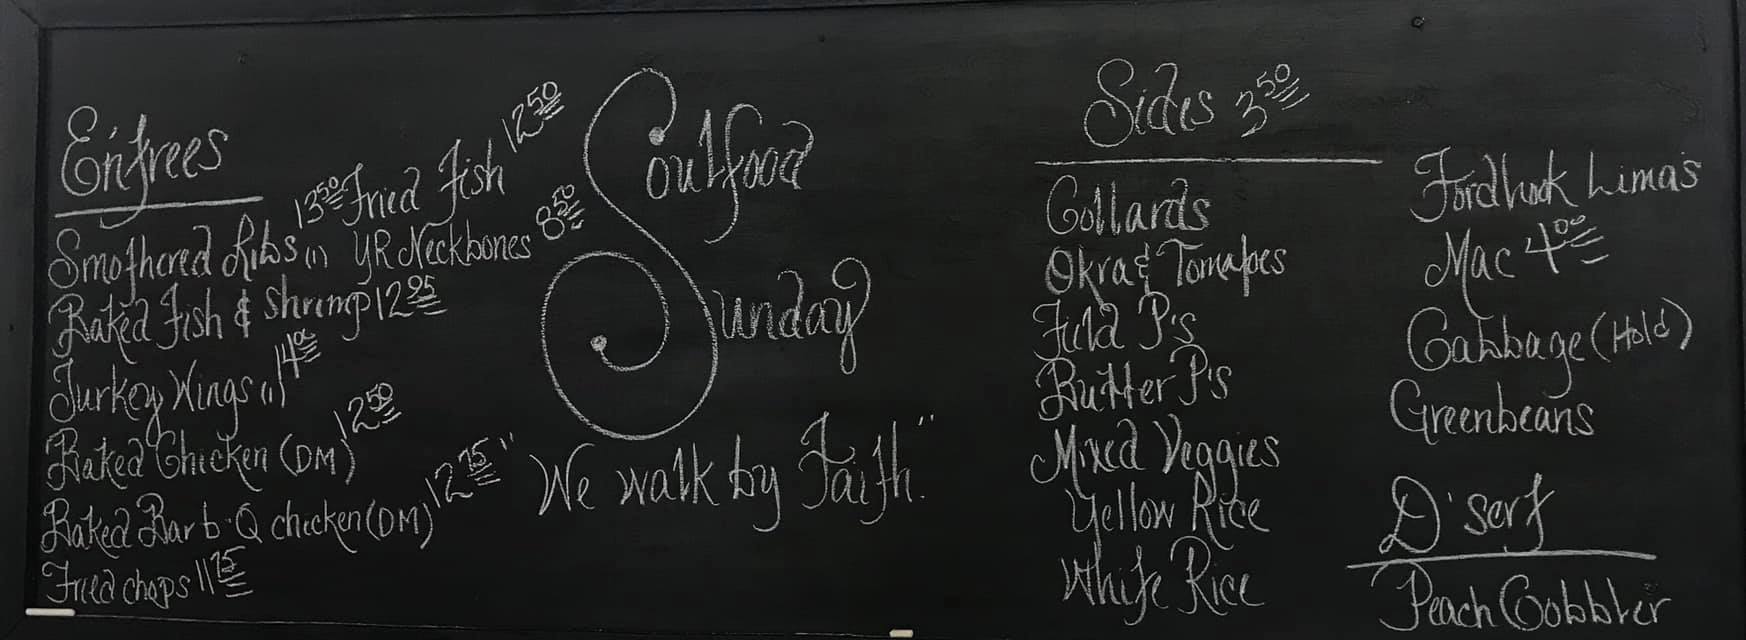 Entrees
Smothered Ribs (1) 13.50
Fried Fish 12.50
YR Neckbones 8.50
Baked Fish & Shrimp 12.95
Turkey Wings (1) 14.00
Baked Chicken (DM) 12.50
Baked Bar-b-Q chicken (DM) 12.75
Fried chops 11.75
Soulfood
Sunday
"We walk by Faith."
Sides 3.50
Collards
Okra & Tomatoes
Field P's
Butter P's
Mixed Veggies
Yellow Rice
White Rice
Fordhook Lima's
Mac 4.00
Cabbage (Hold)
Greenbeans
D'sert
Peach Cobbler